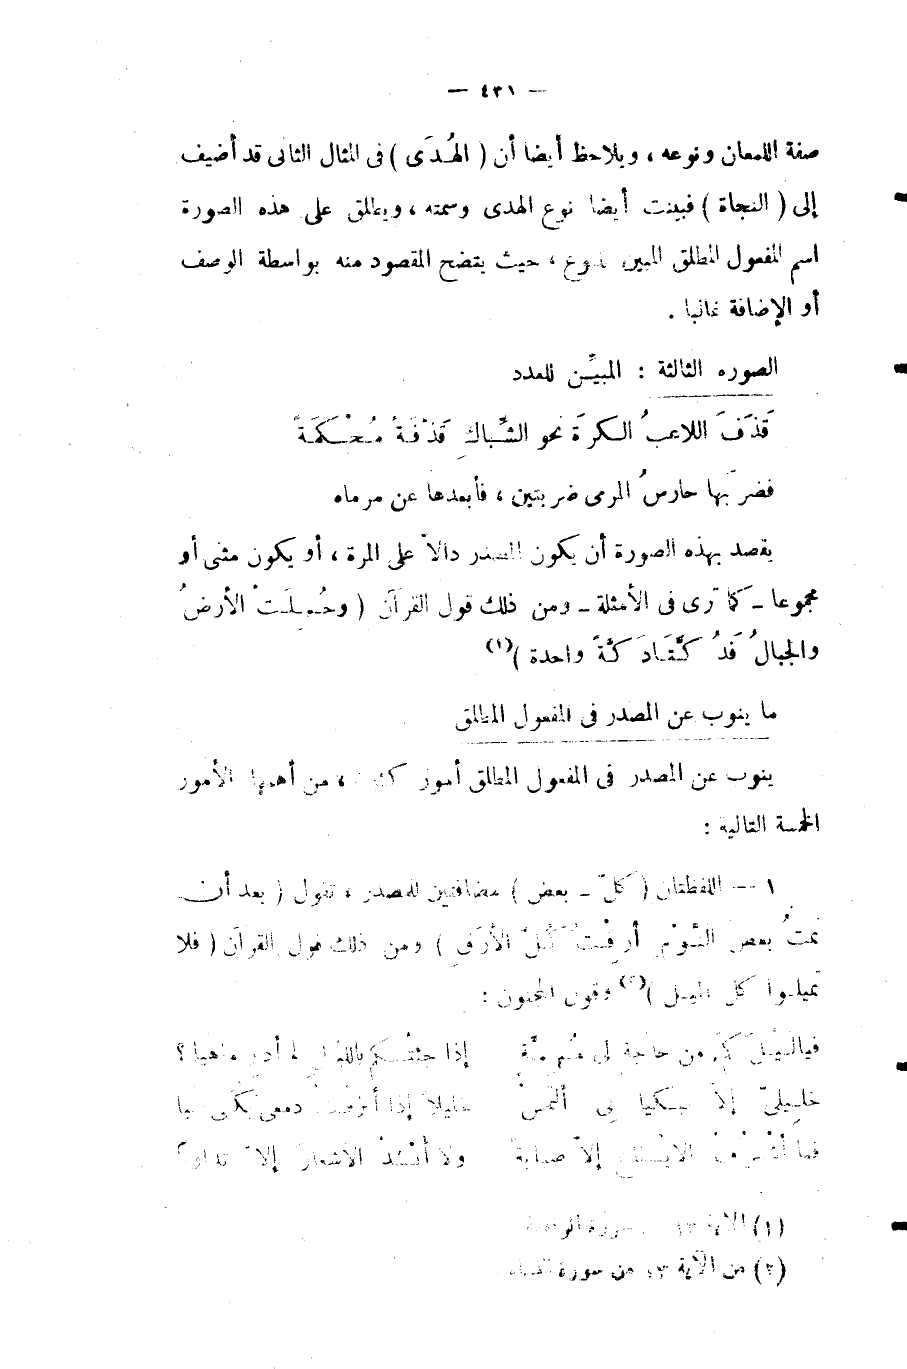 — ٤٣١ —
صفة اللمعان ونوعه ، ويلاحظ أيضا أن ( الهُدَى ) فى المثال الثانى قد أضيف
إلى ( النجاة ) فبينت أيضا نوع الهدى وسمته ، ويطلق على هذه الصورة
اسم المفعول المطلق المبين للنوع ، حيث يتضح المقصود منه بواسطة الوصف
أو الإضافة غالبا .
الصوره الثالثة : المبيِّن للعدد
قذَفَ اللاعبُ الكرةَ نحو الشِّباكِ قَذْفَةً مُحْكَمَةً
فضربَها حارسُ المرمى ضربتين ، فأبعدها عن مرماه
يقصد بهذه الصورة أن يكون المصدر دالاً على المرة ، أو يكون مثنى أو
مجموعا ـ كما ترى فى الأمثلة ـ ومن ذلك قول القرآن ( وحُمِلَتْ الأرضُ
والجبالُ فَدُكَّتَا دَكَّةً واحدة )(١)
ما ينوب عن المصدر فى المفعول المطلق
ينوب عن المصدر فى المفعول المطلق أمور كثيرة ، من أهمها الأمور
الخمسة التالية :
١ — اللفظتان ( كلّ ـ بعض ) مضافتين للمصدر ، تقول ( بعد أن
نمتُ بعضَ النَّوْمِ أرِقْتُ كُلَّ الأرَقِ ) ومن ذلك قول القرآن ( فلا
تميلوا كل الميل )(٢) وقول المجنون :
من حاجةٍ لى إذا جئتُكم بالليلِ لم أدرِ ماهيا ؟
خليليّ إلاّ تبكيا لى ألتمسْ خليلاً إذا أنزفتُ دمعى بكَى ليا
فما الأيفاع إلاّ صبابةً ولا أُنشدُ الأشعارَ إلاّ تداويا
(١) الآية سورة
(٢) من الآية من سورة النساء